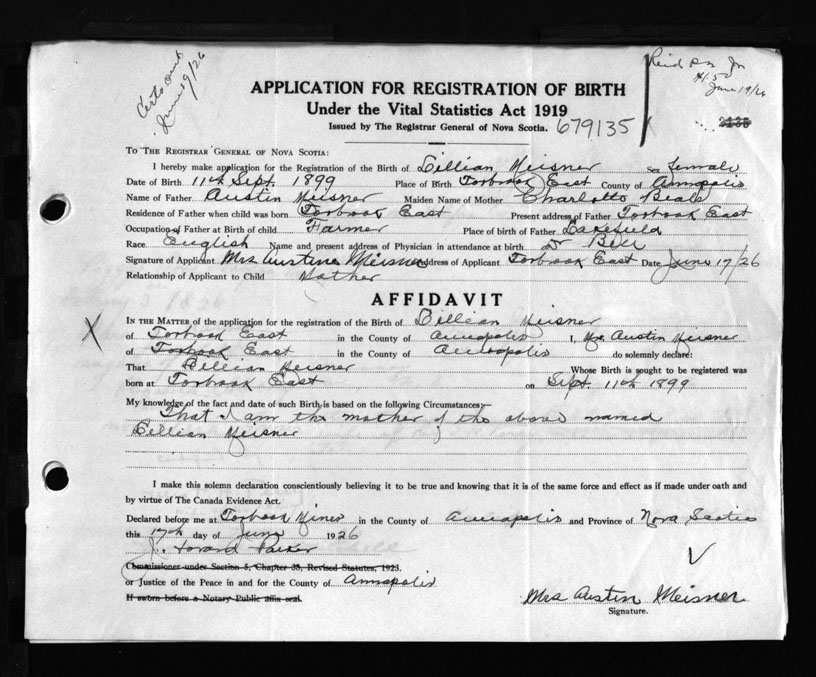 Certs sent
June 19/26
June 19/26
APPLICATION FOR REGISTRATION OF BIRTH
Under the Vital Statistics Act 1919
Issued by The Registrar General of Nova Scotia. 679135
TO THE REGISTRAR GENERAL OF NOVA SCOTIA:
I hereby make application for the Registration of the Birth of Lillian Meisner sex Female
Date of Birth 11th Sept. 1899 Place of Birth Torbrook East County of Annapolis
Name of Father Austin Meisner Maiden Name of Mother Charlotte Beals
Residence of Father when child was born Torbrook East Present address of Father Torbrook East
Occupation of Father at Birth of child Farmer Place of birth of Father Lakefield
Race English Name and present address of Physician in attendance at birth Dr Bell
Signature of Applicant Mrs Austine Meisner Address of Applicant Torbrook East Date June 17/26
Relationship of Applicant to Child Mother
AFFIDAVIT
IN THE MATTER of the application for the registration of the Birth of Lillian Meisner
X of Torbrook East in the County of Annapolis I, Mrs Austin Meisner
of Torbrook East in the County of Annapolis do solemnly declare:
That Lillian Meisner Whose Birth is sought to be registered was
born at Torbrook East on Sept. 11th 1899
My knowledge of the fact and date of such Birth is based on the following Circumstances:—
That I am the mother of the above named
Lillian Meisner
I make this solemn declaration conscientiously believing it to be true and knowing that it is of the same force and effect as if made under oath and
by virtue of The Canada Evidence Act.
Declared before me at Torbrook Mines in the County of Annapolis and Province of Nova Scotia
this 17th day of June 1926
Parker
Commissioner under Section 5, Chapter 38, Revised Statutes, 1923.
or Justice of the Peace in and for the County of Annapolis
If sworn before a Notary Public affix seal.
Mrs Austin Meisner
Signature.